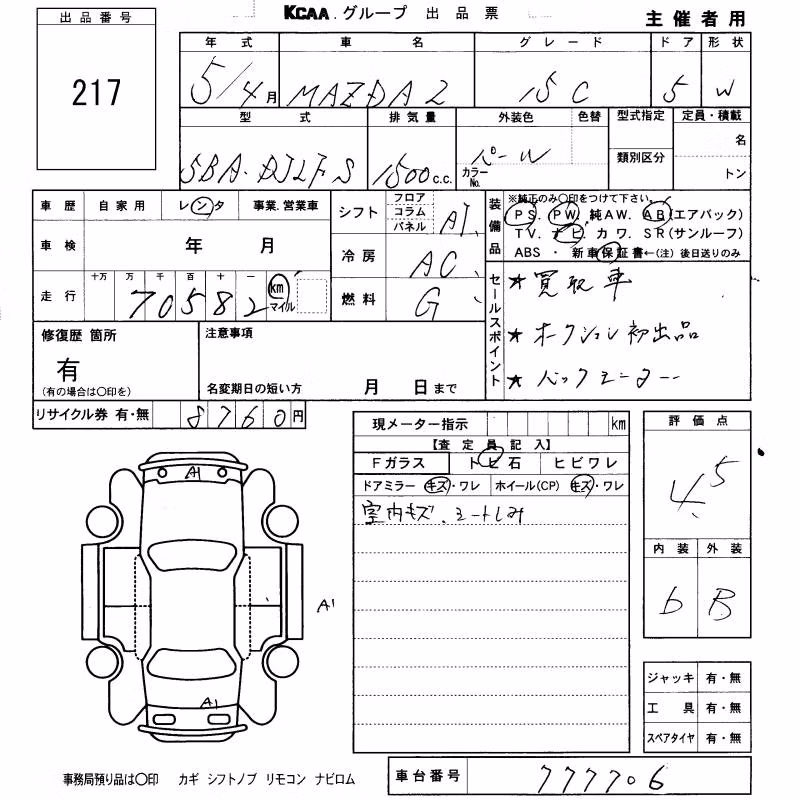 KCAA.グループ 出品票
主催者用
出品番号
217
年式 車名 グレード ドア 形状
5/4月 MAZDA2 15C 5 W
型式 排気量 外装色 色替 型式指定 定員・積載
5BA-DJLFS 1500c.c. パール カラーNo. 類別区分 名 トン
車歴 自家用 レンタ 事業.営業車
車検 年 月
走行 十万 万 千 百 十 一
70582 km マイル
シフト フロア コラム パネル AT
冷房 AC
燃料 G
装備品 ※純正のみ○印をつけて下さい。
PS. PW. 純AW. AB(エアバック)
TV. ナビ. カワ. SR(サンルーフ)
ABS ・ 新車保証書←(注) 後日送りのみ
セールスポイント
★買取車
★オークション初出品
★バックモニター
修復歴 箇所
有
(有の場合は○印を)
注意事項
名変期日の短い方 月 日まで
リサイクル券 有・無 8760円
現メーター指示 km
【査定員記入】
Fガラス トビ石 ヒビワレ
ドアミラー キズ・ワレ ホイール(CP) キズ・ワレ
室内キズ、シートしみ
評価点
4.5
内装 外装
b B
A1
A1
A1
ジャッキ 有・無
工具 有・無
スペアタイヤ 有・無
事務局預り品は○印 カギ シフトノブ リモコン ナビロム
車台番号 777706